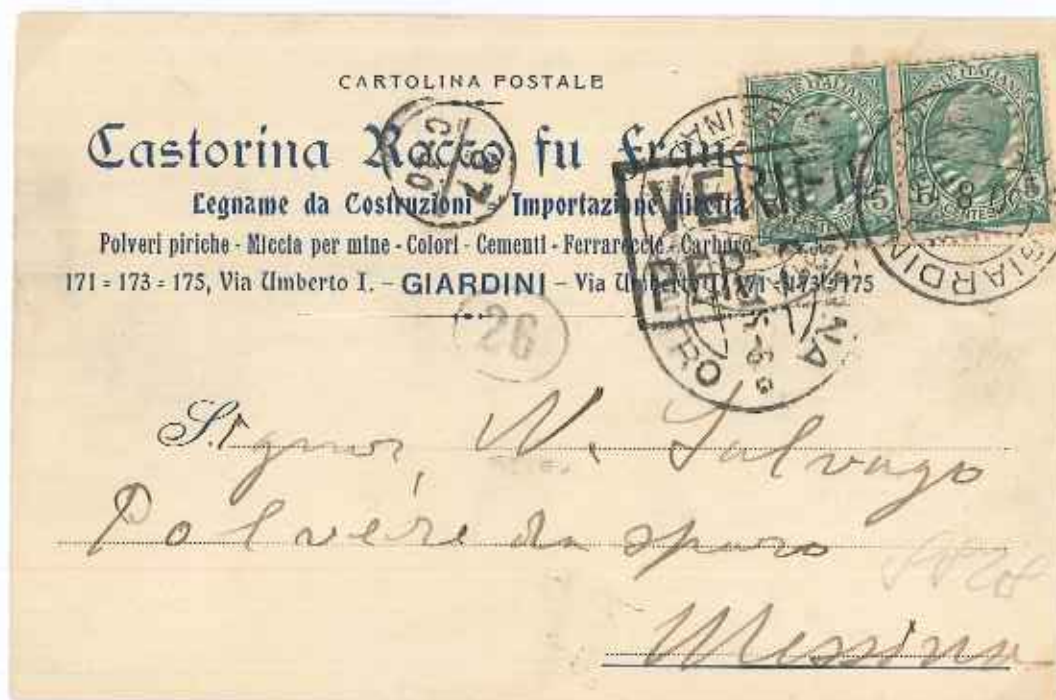 CARTOLINA POSTALE
Castorina Rocco fu Franc
Legname da Costruzioni - Importazione diretta
Polveri piriche - Miccia per mine - Colori - Cementi - Ferrareccie - Carburo
171 = 173 = 175, Via Umberto I. - GIARDINI - Via Umberto I, 171 = 173 = 175
VERIFI
PER
GIARDINI
26
Signor N. Salvago
Polvere da sparo
Messina